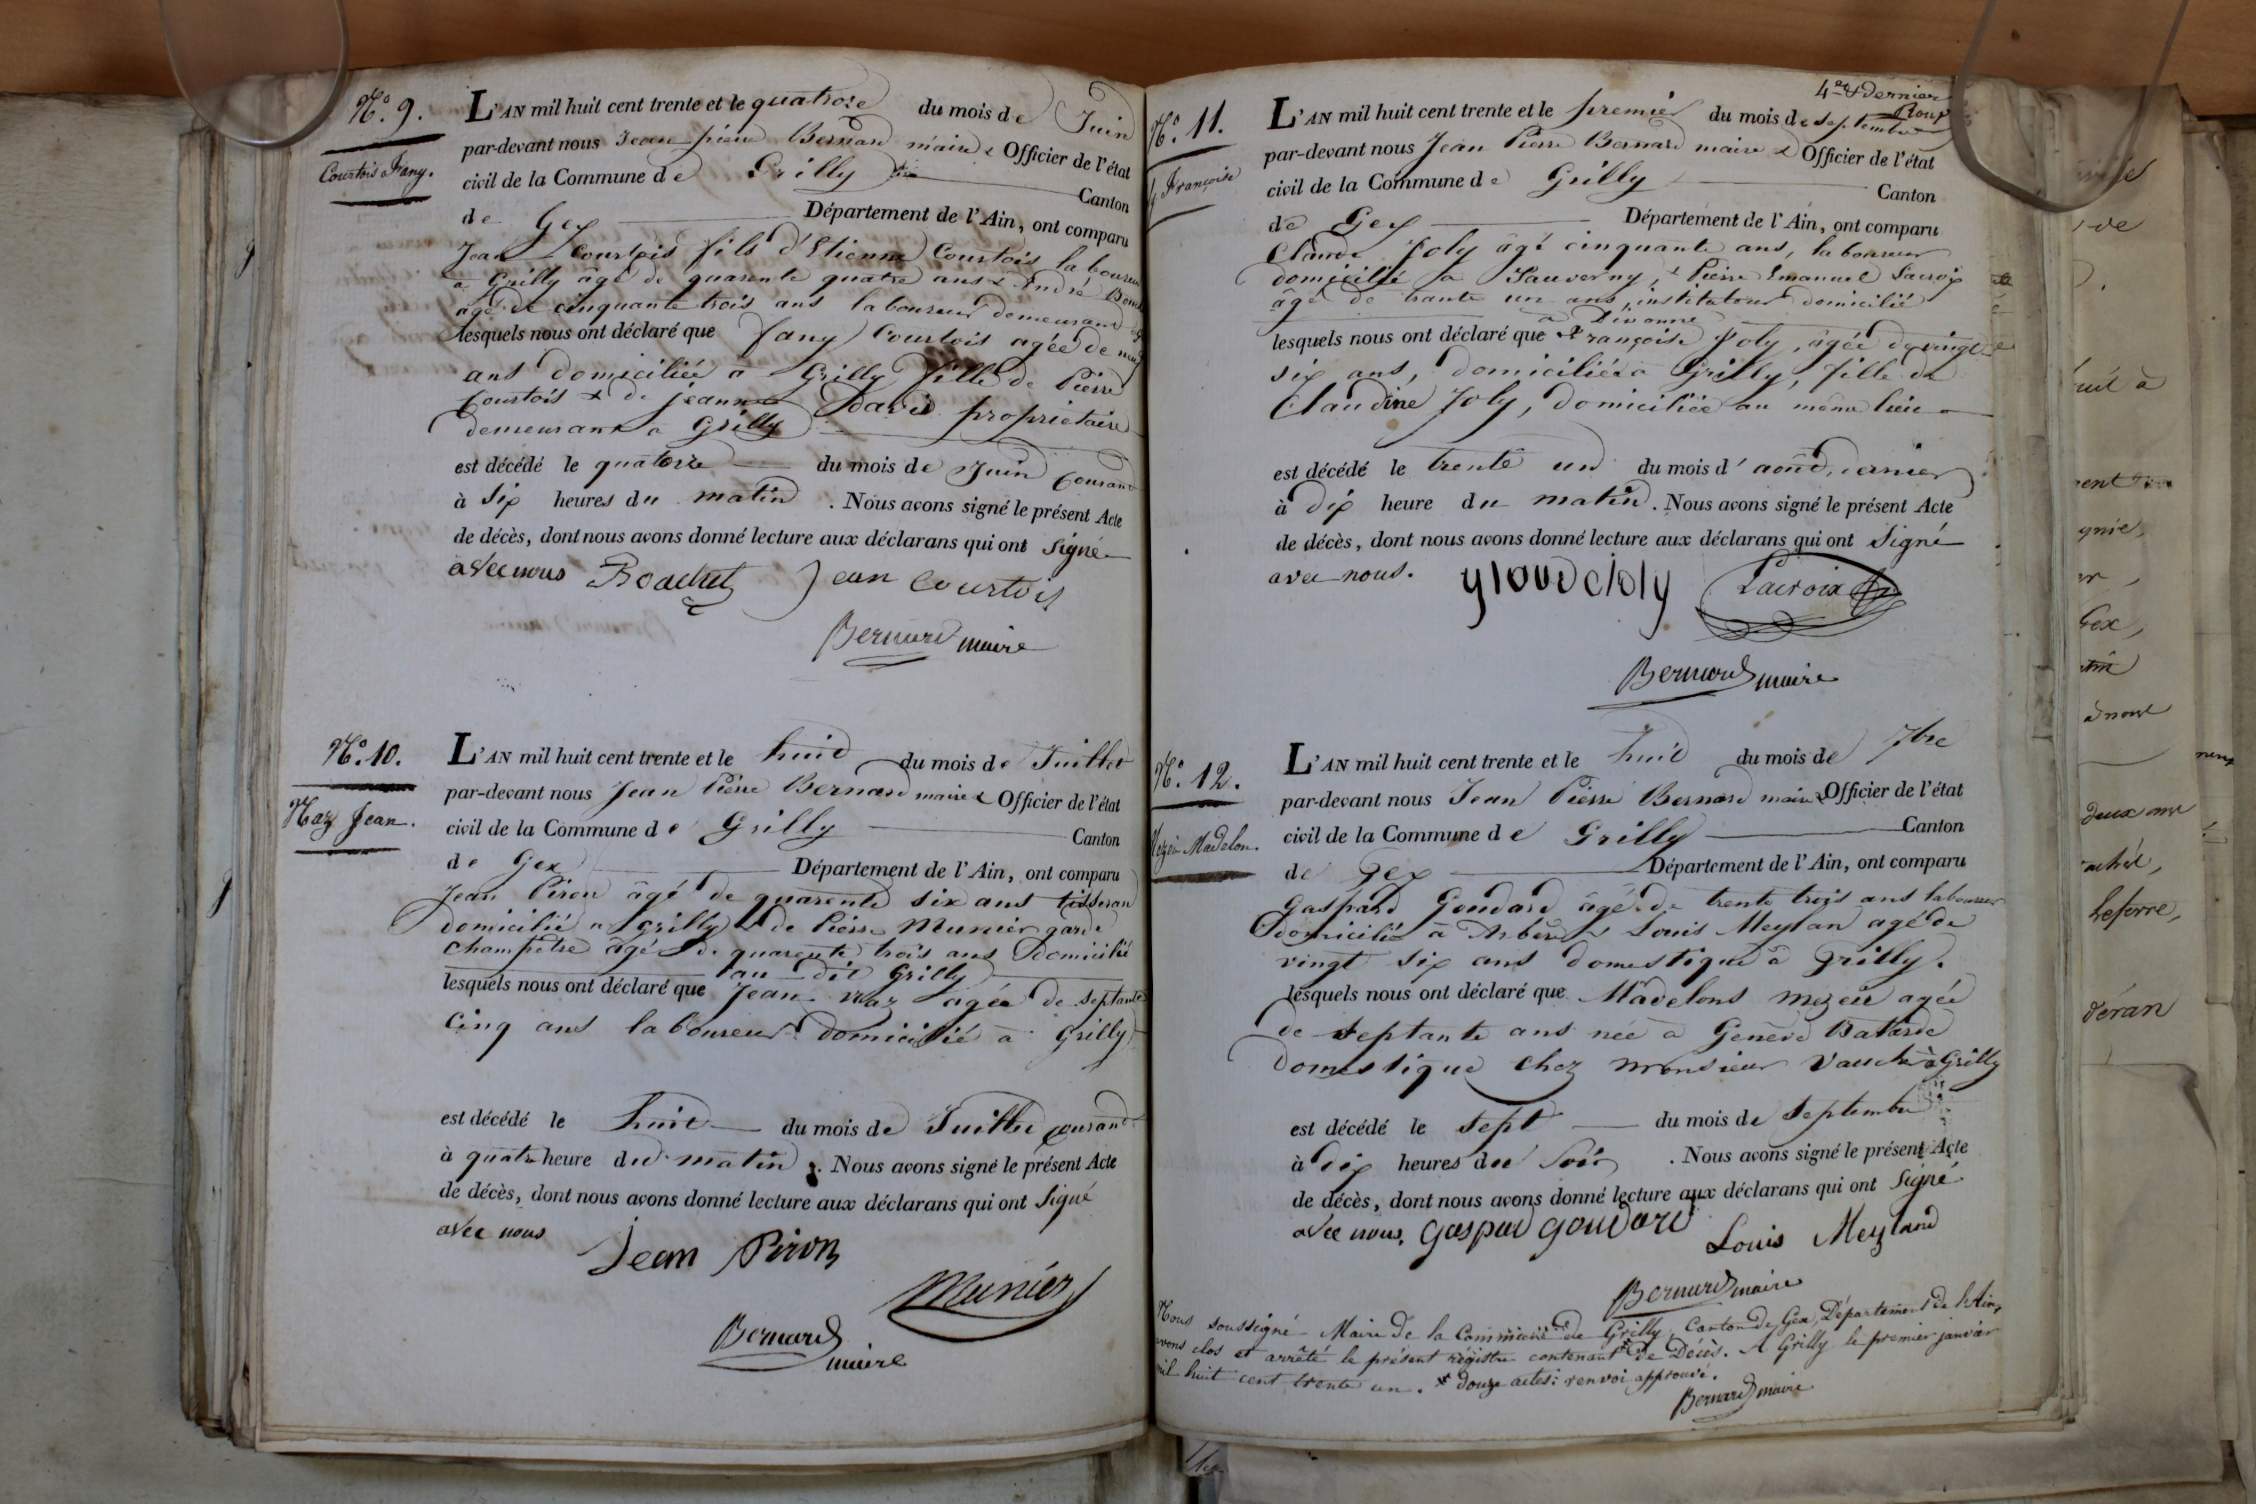 N.° 9.
Courtois Fany.
L'AN mil huit cent trente et le quatroze du mois de Juin
par-devant nous Jean pierre Bernard maire & Officier de l'état
civil de la Commune de Grilly Canton
de Gex Département de l'Ain, ont comparu
Jean Courtois fils d'Etienne Courtois laboureur
a Grilly âgé de quarente quatre ans & André
âgé de cinquante trois ans laboureur demeurant
lesquels nous ont déclaré que fany Courtois agée de neuf
ans domiciliée a Grilly fille de Pierre
Courtois & de jeanne David propriétaire
demeurant a Grilly
est décédé le quatorze du mois de Juin Courant
à Six heures du matin . Nous avons signé le présent Acte
de décès, dont nous avons donné lecture aux déclarans qui ont signé
avec nous Bouchet Jean Courtois
Bernard maire
N.° 10.
Naz Jean.
L'AN mil huit cent trente et le huit du mois de Juillet
par-devant nous Jean Pierre Bernard maire & Officier de l'état
civil de la Commune de Grilly Canton
de Gex Département de l'Ain, ont comparu
Jean Piron âgé de quarente six ans tisseran
domicilié a grilly & de Pierre Munier garde
champêtre âgé de quarente trois ans Domicilié
au dit Grilly
lesquels nous ont déclaré que Jean naz agée de septante
Cinq ans laboureur domicilié à Grilly
est décédé le huit du mois de Juillet courant
à quatre heure du matin . Nous avons signé le présent Acte
de décès, dont nous avons donné lecture aux déclarans qui ont signé
avec nous
Jean Piron
Munier
Bernard
maire
4me & dernier
Roup
N.° 11.
Françoise
L'AN mil huit cent trente et le premier du mois de septembre
par-devant nous Jean Pierre Bernard maire & Officier de l'état
civil de la Commune de Grilly Canton
de Gex Département de l'Ain, ont comparu
Claude Joly âgé cinquante ans, laboureur
domicilié a Sauverny, & Pierre Emanuel Lacroix
âgé de trante un ans, instituteur domicilié
a Divonne
lesquels nous ont déclaré que Françoise Joly, âgée de vingt
six ans, domiciliée à Grilly, fille de
Claudine Joly, domiciliée au même lieu
est décédé le trente un du mois d'aoûd, dernier
à dix heure du matin . Nous avons signé le présent Acte
de décès, dont nous avons donné lecture aux déclarans qui ont signé
avec nous. glaudeJoly Lacroix
Bernard maire
N.° 12.
Mezeir Madelon.
L'AN mil huit cent trente et le huit du mois de 7bre
par-devant nous Jean Pierre Bernard maire & Officier de l'état
civil de la Commune de Grilly Canton
de Gex Département de l'Ain, ont comparu
Gaspard Goudard âgé de trente trois ans laboureur
Domicilié à Arbère & Louis Meylan agé de
vingt six ans domestique à Grilly.
lesquels nous ont déclaré que Madelons mezeir agée
de septante ans née a Genève Batarde
domestique chez monsieur Vauche à Grilly
est décédé le sept du mois de Septembre
à dix heures du soir . Nous avons signé le présent Acte
de décès, dont nous avons donné lecture aux déclarans qui ont signé
avec nous. Gaspard goudard
Louis Meyland
Bernard maire
Nous soussigné Maire de la Commune de Grilly, Canton de Gex, Département de l'Ain,
avons clos et arrêté le présent régistre contenant * de Décès. A Grilly le premier janvier
mil huit cent trente un. * douze actes: renvoi approuvé.
Bernard maire